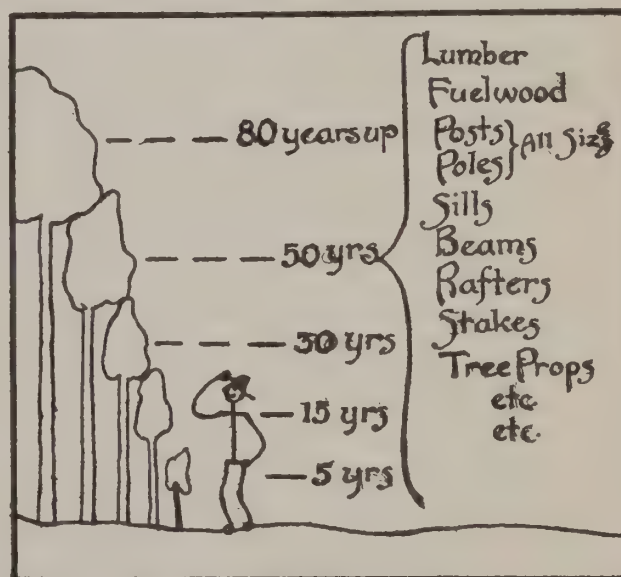 80 years up
50 yrs
30 yrs
15 yrs
5 yrs
Lumber
Fuelwood
Posts
Poles
All Sizes
Sills
Beams
Rafters
Stakes
Tree Props
etc.
etc.